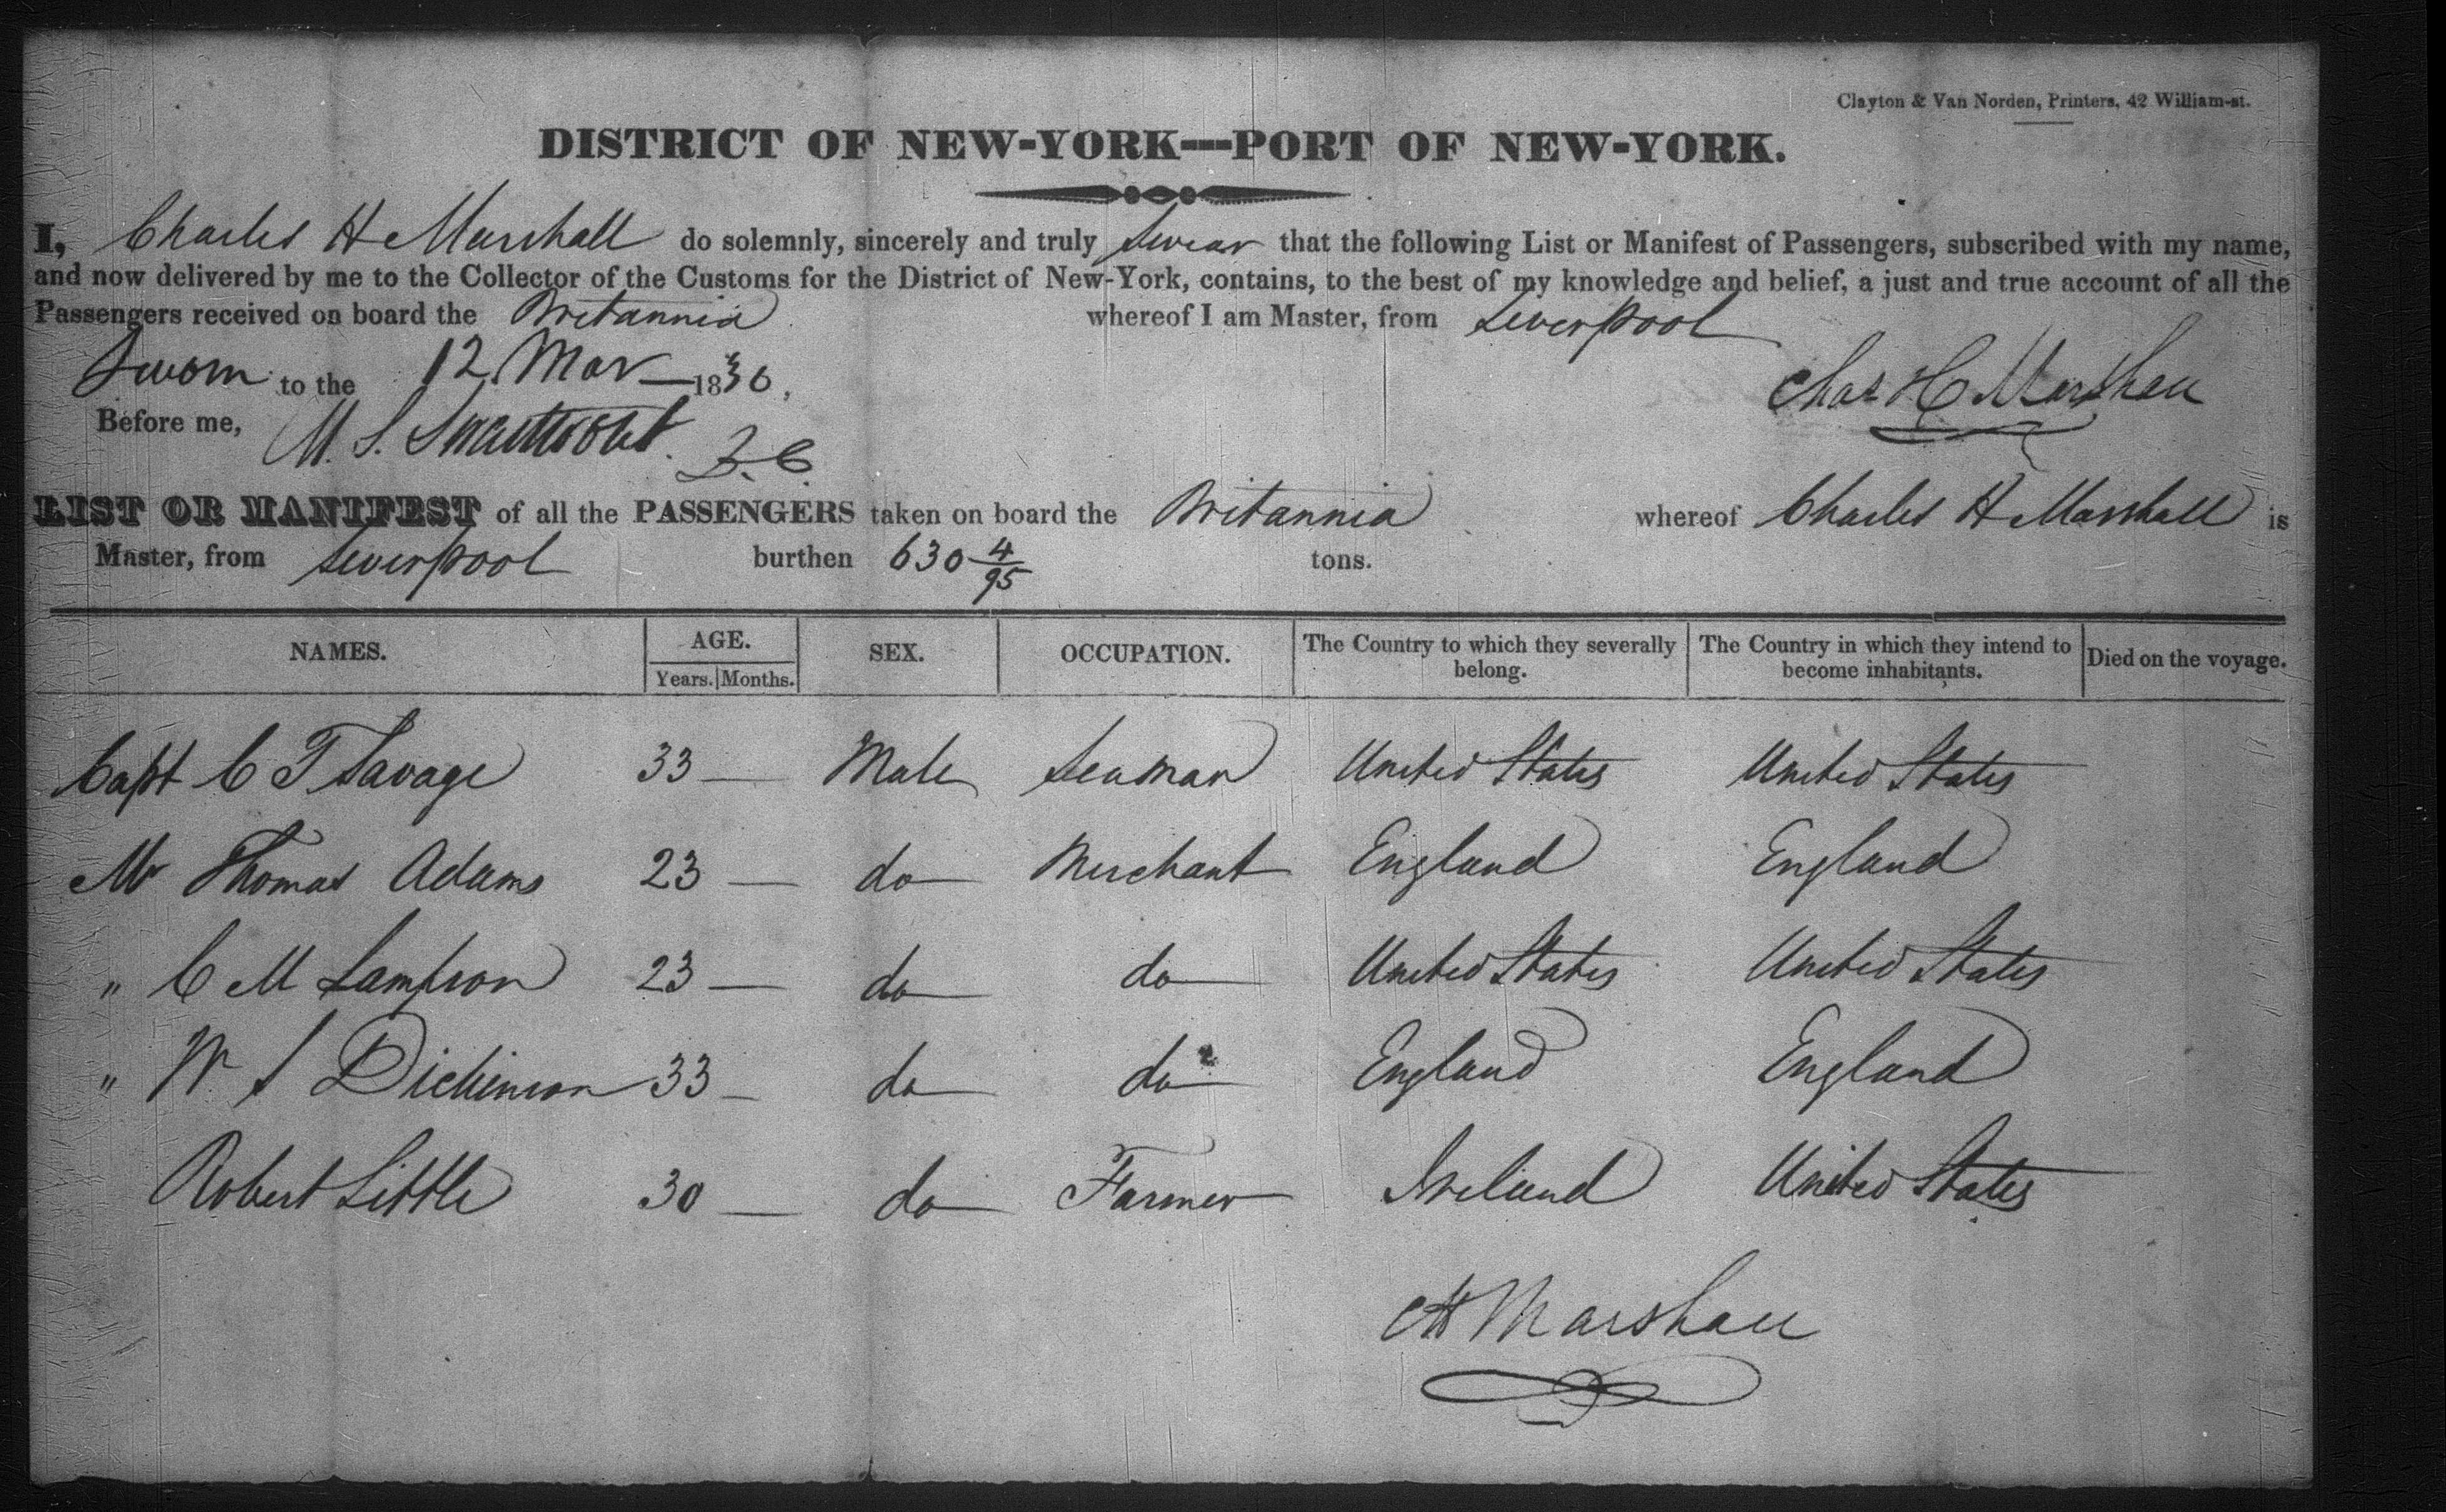 Clayton & Van Norden, Printers, 42 William-st.
DISTRICT OF NEW-YORK—PORT OF NEW-YORK.
I, Charles H Marshall do solemnly, sincerely and truly swear that the following List or Manifest of Passengers, subscribed with my name,
and now delivered by me to the Collector of the Customs for the District of New-York, contains, to the best of my knowledge and belief, a just and true account of all the
Passengers received on board the Britannia whereof I am Master, from Liverpool
Sworn to the 12 Mar 1830,
Chas H Marshall
Before me, M. S. Swartwout. D.C.
LIST OR MANIFEST of all the PASSENGERS taken on board the Britannia whereof Charles H Marshall is
Master, from Liverpool burthen 630 4/95 tons.
NAMES. AGE. Years. Months. SEX. OCCUPATION. The Country to which they severally belong. The Country in which they intend to become inhabitants. Died on the voyage.
Capt C T Savage 33 — Male Seaman United States United States
Mr Thomas Adams 23 — do Merchant England England
" C M Lampson 23 — do do United States United States
" W S Dickinson 33 — do do England England
Robert Little 30 — do Farmer Ireland United States
CH Marshall